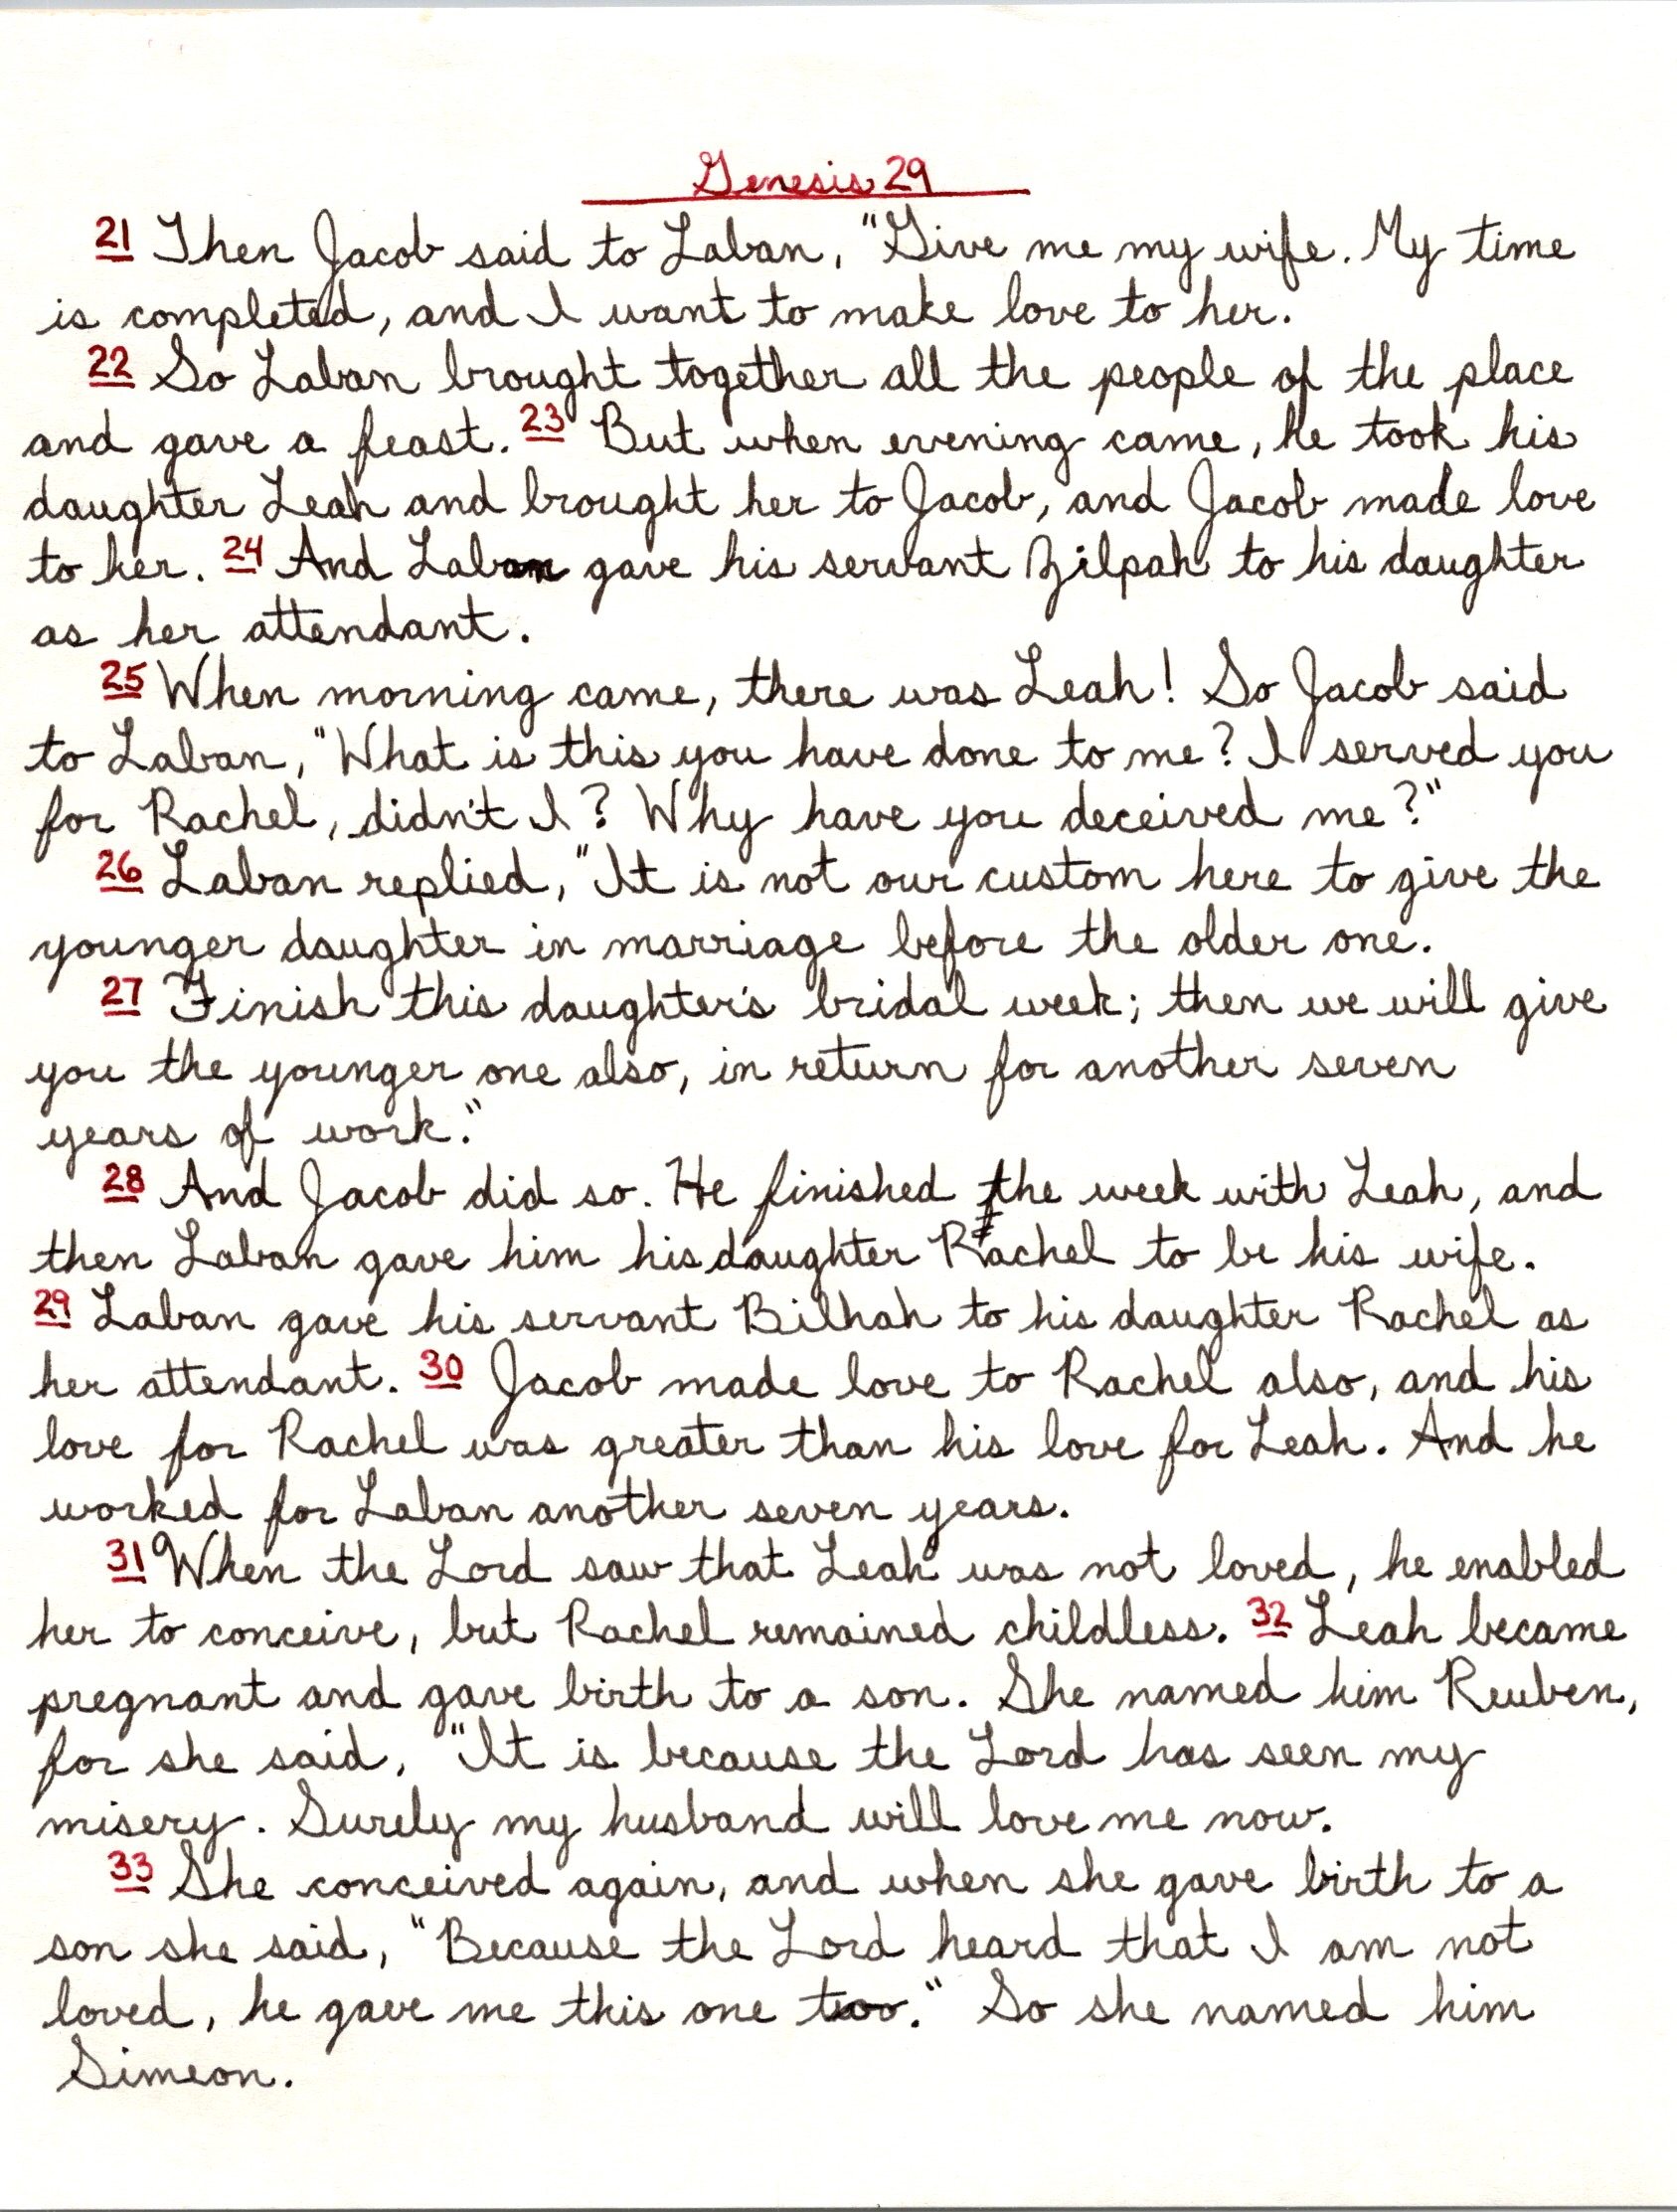 Genesis 29
21 Then Jacob said to Laban, "Give me my wife. My time
is completed, and I want to make love to her.
22 So Laban brought together all the people of the place
and gave a feast. 23 But when evening came, he took his
daughter Leah and brought her to Jacob, and Jacob made love
to her. 24 And Laban gave his servant Zilpah to his daughter
as her attendant.
25 When morning came, there was Leah! So Jacob said
to Laban, "What is this you have done to me? I served you
for Rachel, didn't I? Why have you deceived me?"
26 Laban replied, "It is not our custom here to give the
younger daughter in marriage before the older one.
27 Finish this daughter's bridal week; then we will give
you the younger one also, in return for another seven
years of work."
28 And Jacob did so. He finished the week with Leah, and
then Laban gave him his daughter Rachel to be his wife.
29 Laban gave his servant Bilhah to his daughter Rachel as
her attendant. 30 Jacob made love to Rachel also, and his
love for Rachel was greater than his love for Leah. And he
worked for Laban another seven years.
31 When the Lord saw that Leah was not loved, he enabled
her to conceive, but Rachel remained childless. 32 Leah became
pregnant and gave birth to a son. She named him Reuben,
for she said, "It is because the Lord has seen my
misery. Surely my husband will love me now.
33 She conceived again, and when she gave birth to a
son she said, "Because the Lord heard that I am not
loved, he gave me this one too." So she named him
Simeon.